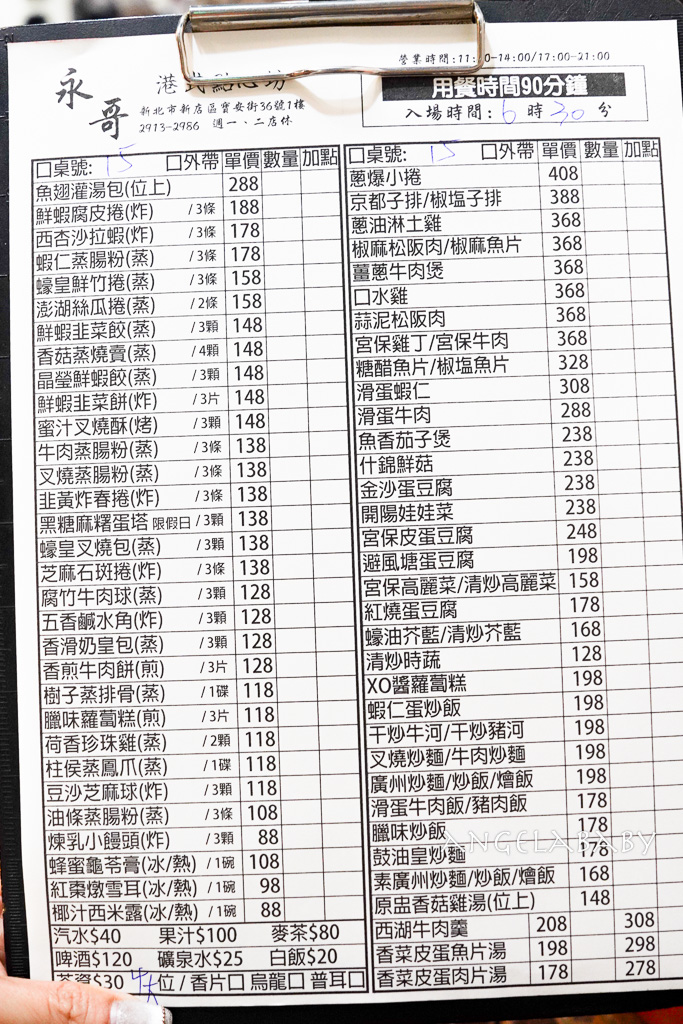 營業時間:11:30-14:00/17:00-21:00
永哥
港式點心坊
新北市新店區寶安街36號1樓
2913-2986 週一、二店休
用餐時間90分鐘
入場時間: 6 時 30 分
口桌號: 15 口外帶 單價 數量 加點
魚翅灌湯包(位上) 288
鮮蝦腐皮捲(炸) /3條 188
西杏沙拉蝦(炸) /3條 178
蝦仁蒸腸粉(蒸) /3條 178
蠔皇鮮竹捲(蒸) /3條 158
澎湖絲瓜捲(蒸) /2條 158
鮮蝦韭菜餃(蒸) /3顆 148
香菇蒸燒賣(蒸) /4顆 148
晶瑩鮮蝦餃(蒸) /3顆 148
鮮蝦韭菜餅(炸) /3片 148
蜜汁叉燒酥(烤) /3顆 148
牛肉蒸腸粉(蒸) /3條 138
叉燒蒸腸粉(蒸) /3條 138
韭黃炸春捲(炸) /3條 138
黑糖麻糬蛋塔 限假日/3顆 138
蠔皇叉燒包(蒸) /3顆 138
芝麻石斑捲(炸) /3條 138
腐竹牛肉球(蒸) /3顆 128
五香鹹水角(炸) /3顆 128
香滑奶皇包(蒸) /3顆 128
香煎牛肉餅(煎) /3片 128
樹子蒸排骨(蒸) /1碟 118
臘味蘿蔔糕(煎) /3片 118
荷香珍珠雞(蒸) /2顆 118
柱侯蒸鳳爪(蒸) /1碟 118
豆沙芝麻球(炸) /3顆 118
油條蒸腸粉(蒸) /3條 108
煉乳小饅頭(炸) /3顆 88
蜂蜜龜苓膏(冰/熱) /1碗 108
紅棗燉雪耳(冰/熱) /1碗 98
椰汁西米露(冰/熱) /1碗 88
汽水$40 果汁$100 麥茶$80
啤酒$120 礦泉水$25 白飯$20
茶資$30 位/香片口 烏龍口 普耳口
口桌號: 15 口外帶 單價 數量 加點
蔥爆小捲 408
京都子排/椒塩子排 388
蔥油淋土雞 368
椒麻松阪肉/椒麻魚片 368
薑蔥牛肉煲 368
口水雞 368
蒜泥松阪肉 368
宮保雞丁/宮保牛肉 368
糖醋魚片/椒塩魚片 328
滑蛋蝦仁 308
滑蛋牛肉 288
魚香茄子煲 238
什錦鮮菇 238
金沙蛋豆腐 238
開陽娃娃菜 238
宮保皮蛋豆腐 248
避風塘蛋豆腐 198
宮保高麗菜/清炒高麗菜 158
紅燒蛋豆腐 178
蠔油芥藍/清炒芥藍 168
清炒時蔬 128
XO醬蘿蔔糕 198
蝦仁蛋炒飯 198
干炒牛河/干炒豬河 198
叉燒炒麵/牛肉炒麵 198
廣州炒麵/炒飯/燴飯 198
滑蛋牛肉飯/豬肉飯 178
臘味炒飯 178
鼓油皇炒麵 178
素廣州炒麵/炒飯/燴飯 168
原盅香菇雞湯(位上) 148
西湖牛肉羹 208 308
香菜皮蛋魚片湯 198 298
香菜皮蛋肉片湯 178 278
ANGELABABY